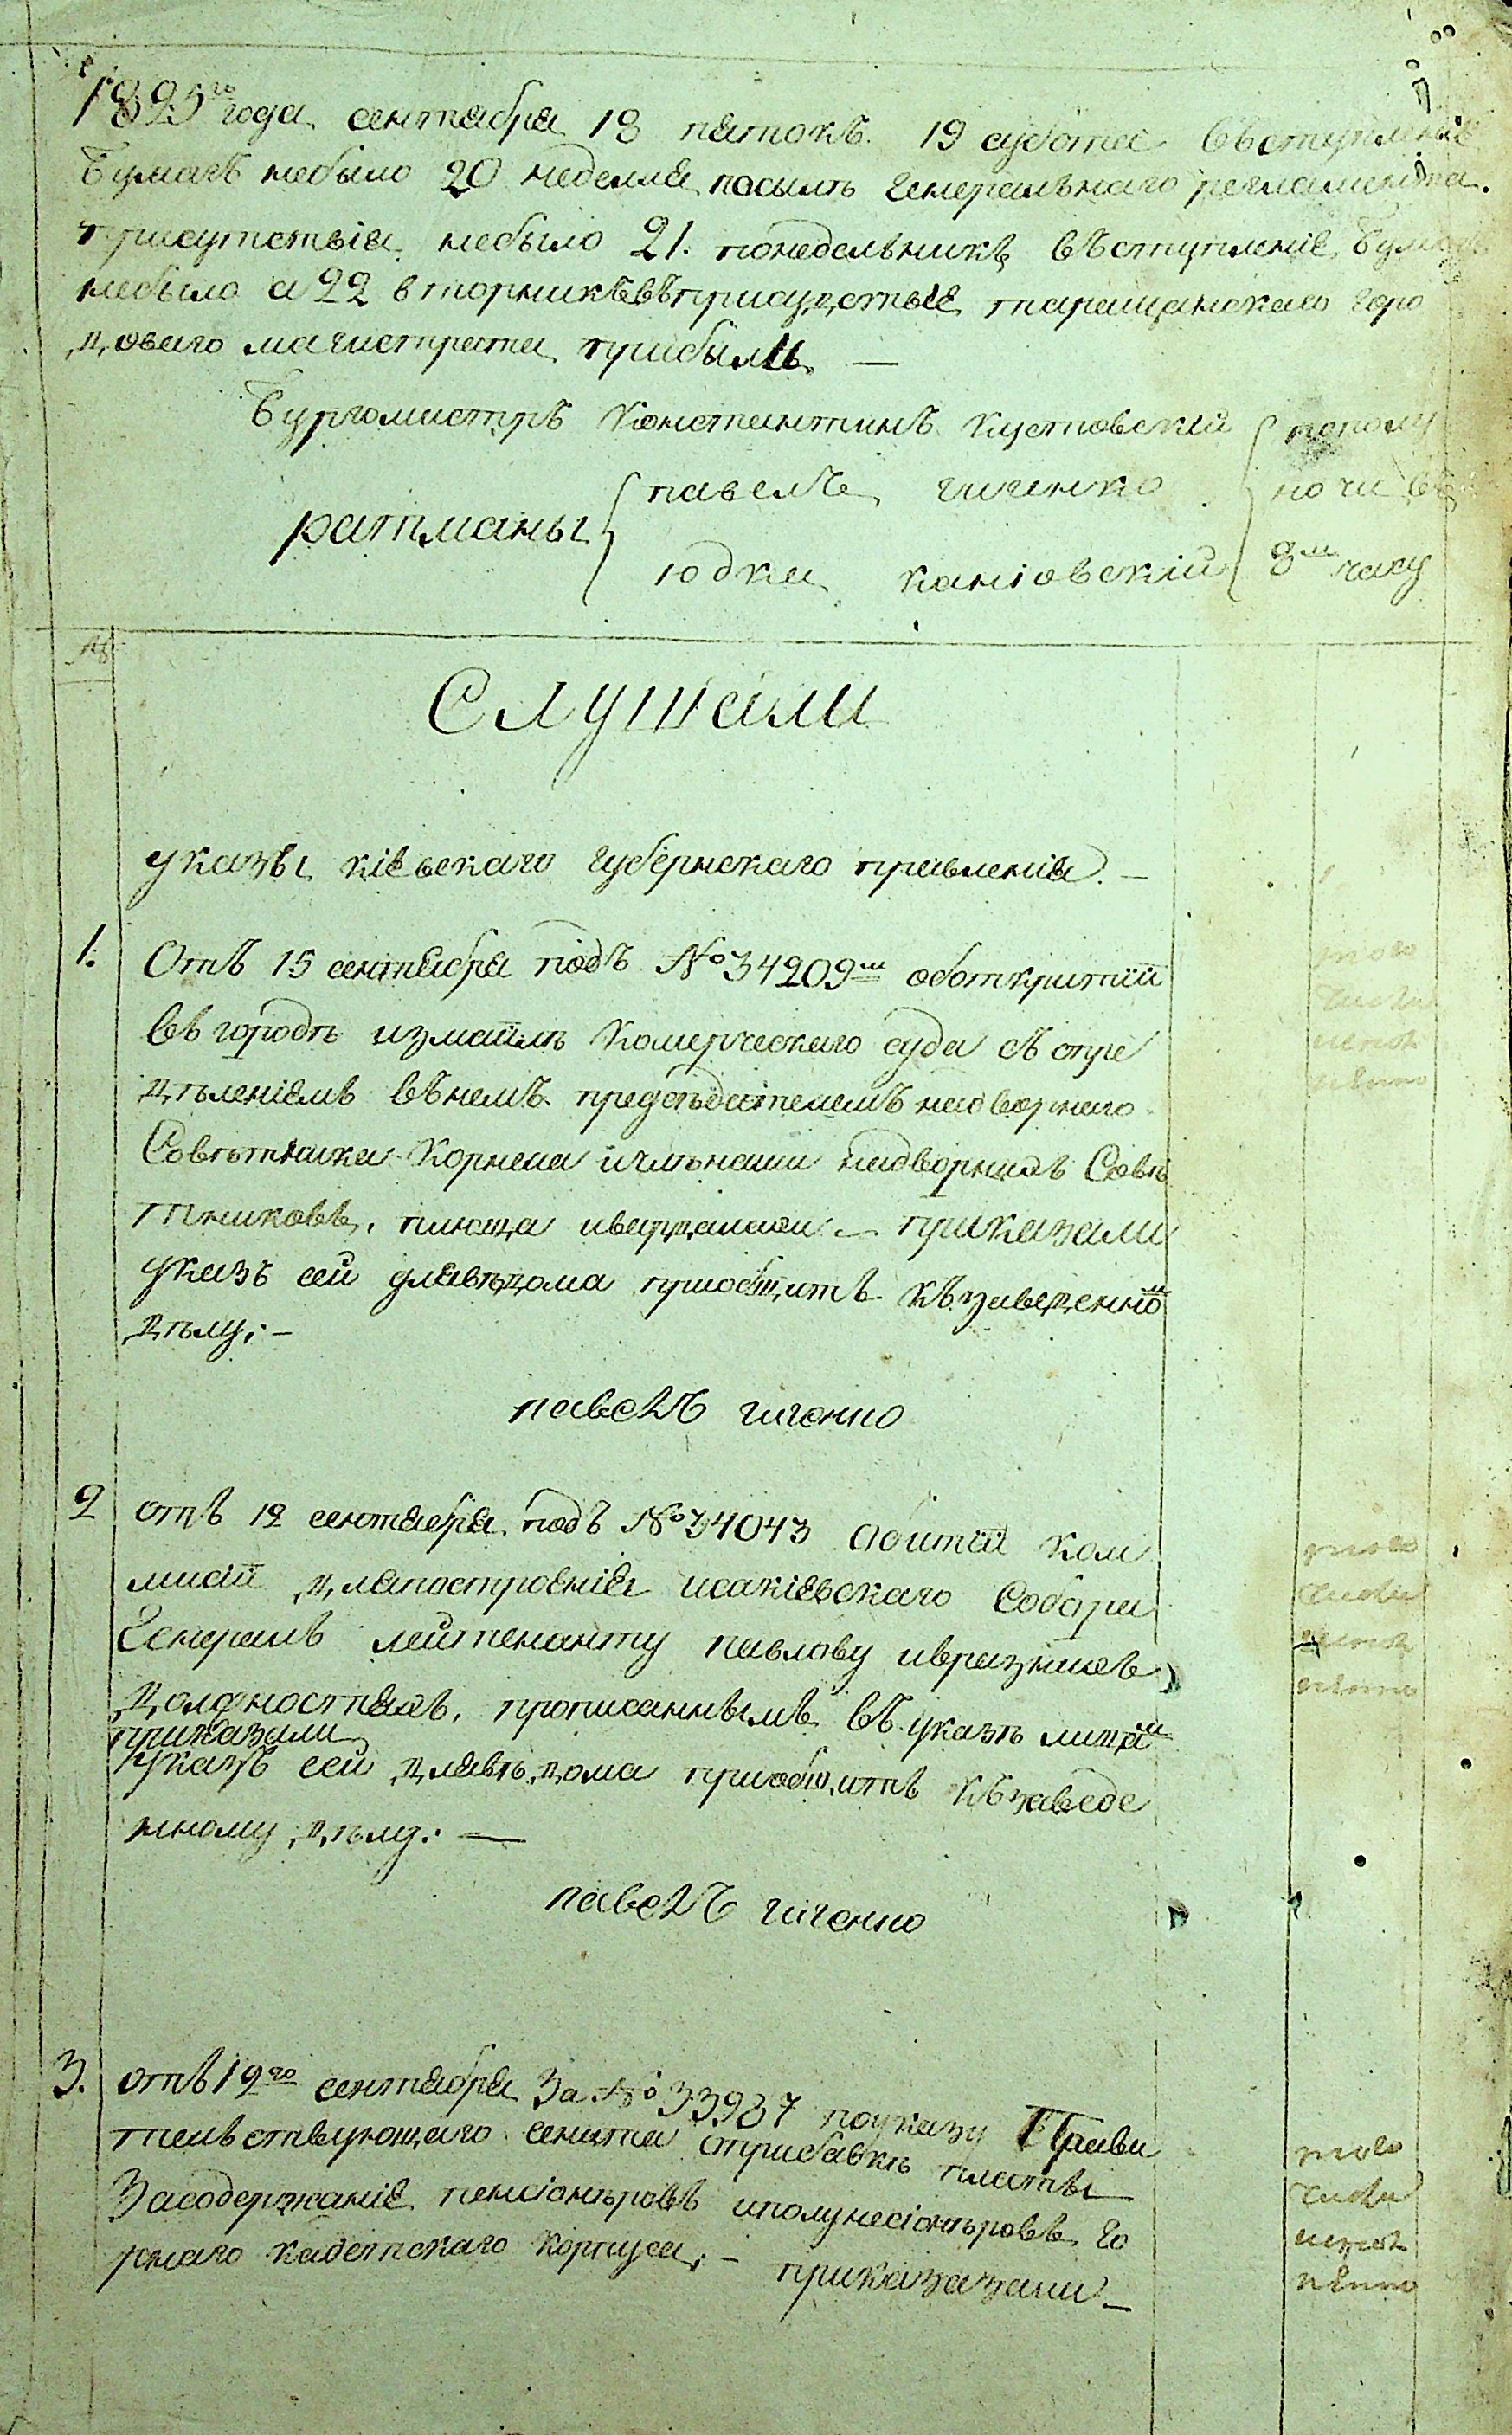 1825го года сентября 18 пятокъ. 19 субота въступленіе
бумагъ небыло 20 неделя посылѣ генеральнаго регламента.
присутствія небыло 21. понедельникъ въступленіе бумагъ
небыло а 22 вторникъ въприсудствіе таращанскаго горо
доваго магистрата прибыли —
Бургомистръ Константинъ Кустовскій
ратманы
павелъ гиченко
юдка каніовскій
пополу
ночи въ
8м часу
№
Слушали
указы кіевскаго губернскаго правленія. —
1. Отъ 15 сентября подъ № 34209м оботкритіи
въ городѣ измаилѣ Комерческаго суда съ опре
дѣленіемъ въ немъ предсѣдателемъ надворнаго
Совѣтника Корнела ичлѣнами надворнихъ Совѣ
тниковъ, — приказали
указъ сей длявѣдома приобщить къзаведенно м
дѣлу. —
павелъ гиченко
2 отъ 12 сентября подъ № 34043 обитіи ком
мисіи дляпостроенія исакіевскаго Собора
Генералъ лейтенанту павлову
должностяхъ, прописаннымъ въ указѣ
приказали
указъ сей длявѣдома приобщить къзаведе
нному дѣлу. —
павелъ гиченко
3. отъ 12го сентября За № 33937 поуказу Прави
тельствующаго сената оприбавкѣ платы
Засодержаніе пенсіонѣровъ иполунесіонѣровъ го
рнаго кадетскаго корпуса. — приказазали —
того
числа
испол
нено
того
числа
испол
нено
того
числа
испол
нено